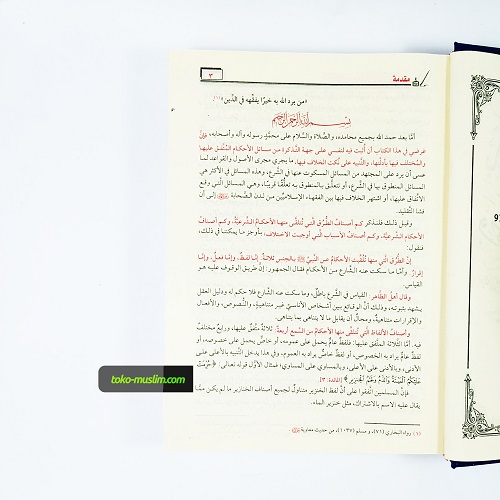 مقدمة
٣
«من يرد الله به خيرًا يفقّهه في الدّين»(١)
بسم الله الرحمن الرحيم
أمّا بعد حمد الله بجميع محامده، والصّلاة والسّلام على محمّدٍ رسوله وآله وأصحابه، فإنّ
غرضي في هذا الكتاب أن أُثبت فيه لنفسي على جهة التّذكرة من مسائل الأحكام المتّفق عليها
والمختلف فيها بأدلّتها، والتّنبيه على نكت الخلاف فيها، ما يجري مجرى الأصول والقواعد لما
عسى أن يرد على المجتهد من المسائل المسكوت عنها في الشّرع، وهذه المسائل في الأكثر هي
المسائل المنطوق بها في الشّرع، أو تتعلّق بالمنطوق به تعلّقًا قريبًا، وهي المسائل الّتي وقع
الاتّفاق عليها، أو اشتهر الخلاف فيها بين الفقهاء الإسلاميّين من لدن الصّحابة ﷺ إلى أن
فشا التّقليد.
وقبل ذلك فلنذكر كم أصناف الطّرق الّتي تُتلقّى منها الأحكام الشّرعيّة، وكم أصناف
الأحكام الشّرعيّة، وكم أصناف الأسباب الّتي أوجبت الاختلاف، بأوجز ما يمكننا في ذلك،
فنقول:
إنّ الطّرق الّتي منها تُلُقّيت الأحكام عن النّبيّ ﷺ بالجنس ثلاثةٌ: إمّا لفظٌ، وإمّا فعلٌ، وإمّا
إقرارٌ. وأمّا ما سكت عنه الشّارع من الأحكام فقال الجمهور: إنّ طريق الوقوف عليه هو
القياس.
وقال أهل الظّاهر: القياس في الشّرع باطلٌ، وما سكت عنه الشّارع فلا حكم له ودليل العقل
يشهد بثبوته، وذلك أنّ الوقائع بين أشخاص الأناسيّ غير متناهيةٍ، والنّصوص، والأفعال
والإقرارات متناهيةٌ، ومحالٌ أن يقابل ما لا يتناهى بما يتناهى.
وأصناف الألفاظ الّتي تُتلقّى منها الأحكام من السّمع أربعةٌ: ثلاثةٌ متّفقٌ عليها، ورابعٌ مختلفٌ
فيه. أمّا الثّلاثة المتّفق عليها: فلفظٌ عامٌّ يحمل على عمومه، أو خاصٌّ يحمل على خصوصه، أو
لفظٌ عامٌّ يراد به الخصوص، أو لفظٌ خاصٌّ يراد به العموم، وفي هذا يدخل التّنبيه بالأعلى على
الأدنى، وبالأدنى على الأعلى، وبالمساوي على المساوي، فمثال الأوّل قوله تعالى: ﴿حُرِّمَتْ
عَلَيْكُمُ الْمَيْتَةُ وَالدَّمُ وَلَحْمُ الْخِنزِيرِ﴾ [المائدة: ٣]
فإنّ المسلمين اتّفقوا على أنّ لفظ الخنزير متناولٌ لجميع أصناف الخنازير ما لم يكن ممّا
يقال عليه الاسم بالاشتراك، مثل خنزير الماء.
(١) رواه البخاري (٧١)، ومسلم (١٠٣٧)، من حديث معاوية
toko-muslim.com